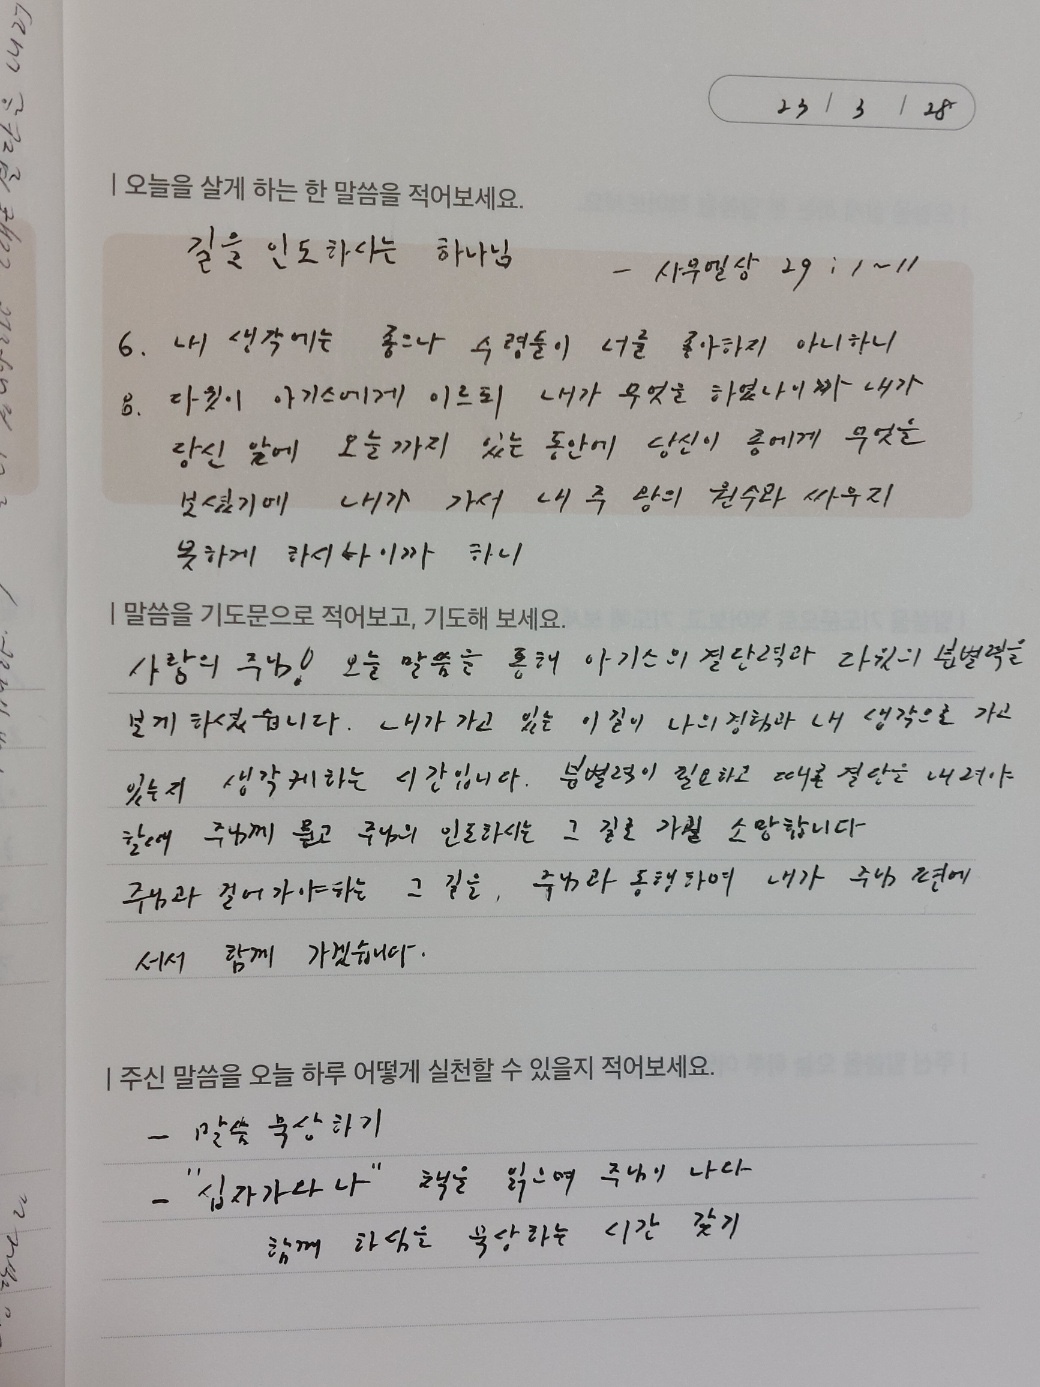 23 / 3 / 28
오늘을 살게 하는 한 말씀을 적어보세요.
길을 인도하시는 하나님
- 사무엘상 29 : 1 ~ 11
6. 내 생각에는 좋으나 수령들이 너를 좋아하지 아니하니
8. 다윗이 아기스에게 이르되 내가 무엇을 하였나이까 내가
당신 앞에 오늘까지 있는 동안에 당신이 종에게 무엇을
보셨기에 내가 가서 내 주 왕의 원수와 싸우지
못하게 하시나이까 하니
말씀을 기도문으로 적어보고, 기도해 보세요.
사랑의 주님! 오늘 말씀을 통해 아기스의 결단력과 다윗의 분별력을
보게 하셨습니다. 내가 가고 있는 이 길이 나의 경험과 내 생각으로 가고
있는지 생각케하는 시간입니다. 분별력이 필요하고 때론 결단을 내려야
할때 주님께 묻고 주님의 인도하시는 그 길로 가길 소망합니다
주님과 걸어가야하는 그 길을, 주님과 동행하며 내가 주님 편에
서서 함께 가겠습니다.
주신 말씀을 오늘 하루 어떻게 실천할 수 있을지 적어보세요.
- 말씀 묵상하기
- "십자가와 나" 책을 읽으며 주님이 나와
함께 하심을 묵상하는 시간 갖기